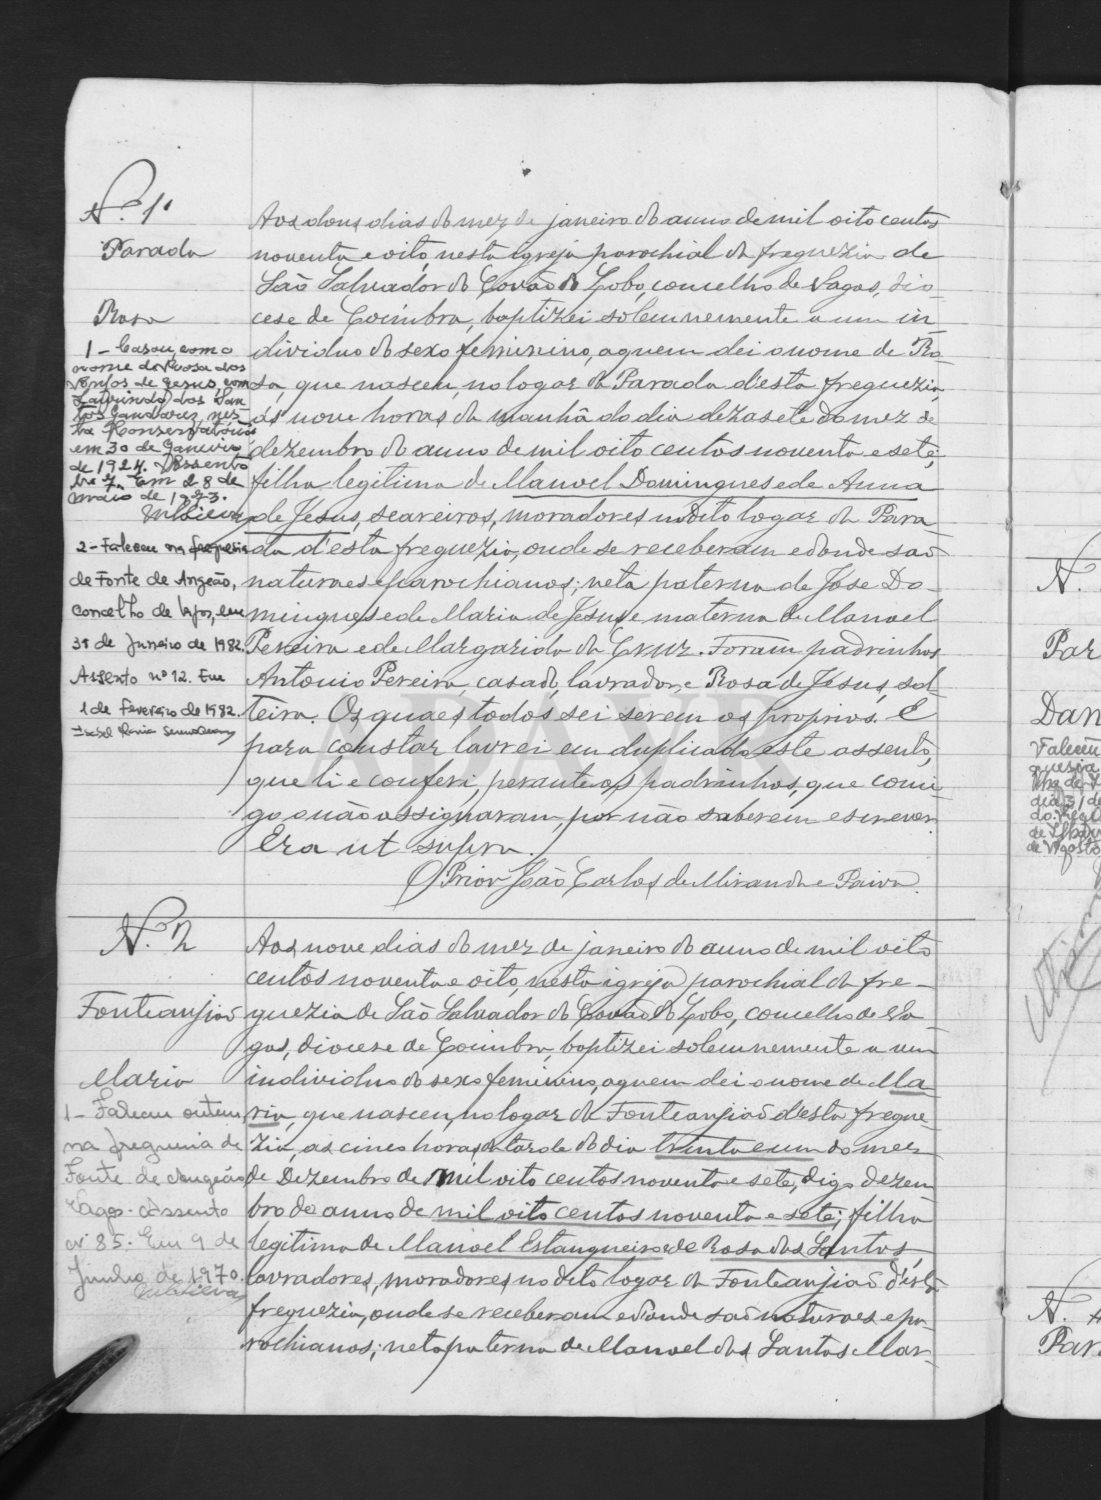 N.º 1.
Parada
Rosa
1 - Casou, com o
nome de Rosa dos
Anjos de Jesus, com
Laurindo dos San-
tos Gandarez, nes-
ta Conservatória
em 30 de Janeiro
de 1924. Assento
nº 7. Em 28 de
maio de 1973.
2 - Faleceu na freguesia
de Fonte de Angeão,
concelho de Vagos, em
31 de Janeiro de 1982.
Assento nº 12. Em
1 de Fevereiro de 1982.
Aos dous dias do mez de janeiro do anno de mil oito centos
noventa e oito, nesta igreja parochial da freguezia de
São Salvador do Covão do Lobo, concelho de Vagos, dio-
cese de Coimbra, baptizei solemnemente a um in-
dividuo do sexo feminino, a quem dei o nome de Ro-
sa, que nasceu, no logar da Parada d'esta freguezia,
ás nove horas da manhã do dia dezasete do mez de
dezembro do anno de mil oito centos noventa e sete,
filha legitima de Manoel Domingues e de Anna
de Jesus, seareiros, moradores no dito logar da Para
da d'esta freguezia, onde se receberam e d'onde são
naturaes e parochianos; neta paterna de José Do-
mingues e de Maria de Jesus, e materna de Manoel
Pereira e de Margarida da Cruz. Foram padrinhos
Antonio Pereira, casado, lavrador, e Rosa de Jesus, sol-
teira. Os quaes todos sei serem os proprios. E
para constar lavrei em duplicado este assento,
que li e conferi, perante os padrinhos, que comi-
go o não assignaram, por não saberem escrever.
Era ut supra.
O Prior João Carlos de Miranda e Paiva.
N.º 2
Fonteanjião
Maria
1 - Faleceu ontem,
na freguesia de
Fonte de Angeão
Vagos. Assento
nº 85. Em 9 de
Junho de 1970.
Aos nove dias do mez de janeiro do anno de mil oito
centos noventa e oito, nesta igreja parochial da fre-
guezia de São Salvador do Covão do Lobo, concelho de Va-
gos, diocese de Coimbra, baptizei solemnemente a um
individuo do sexo feminino, a quem dei o nome de Ma-
ria, que nasceu, no logar da Fonteanjião d'esta fregue-
zia, as cinco horas da tarde do dia trinta e um do mez
de Dezembro de mil oito centos noventa e sete, digo dezem-
bro de anno de mil oito centos noventa e sete; filha
legitima de Manoel Estanqueiro e de Rosa dos Santos,
lavradores, moradores no dito logar da Fonteanjião d'esta
freguezia, onde se receberam e d'onde são naturaes e pa-
rochianos; neta paterna de Manoel dos Santos Mar-
N.
Par
Dan
Faleceu
N.
Par